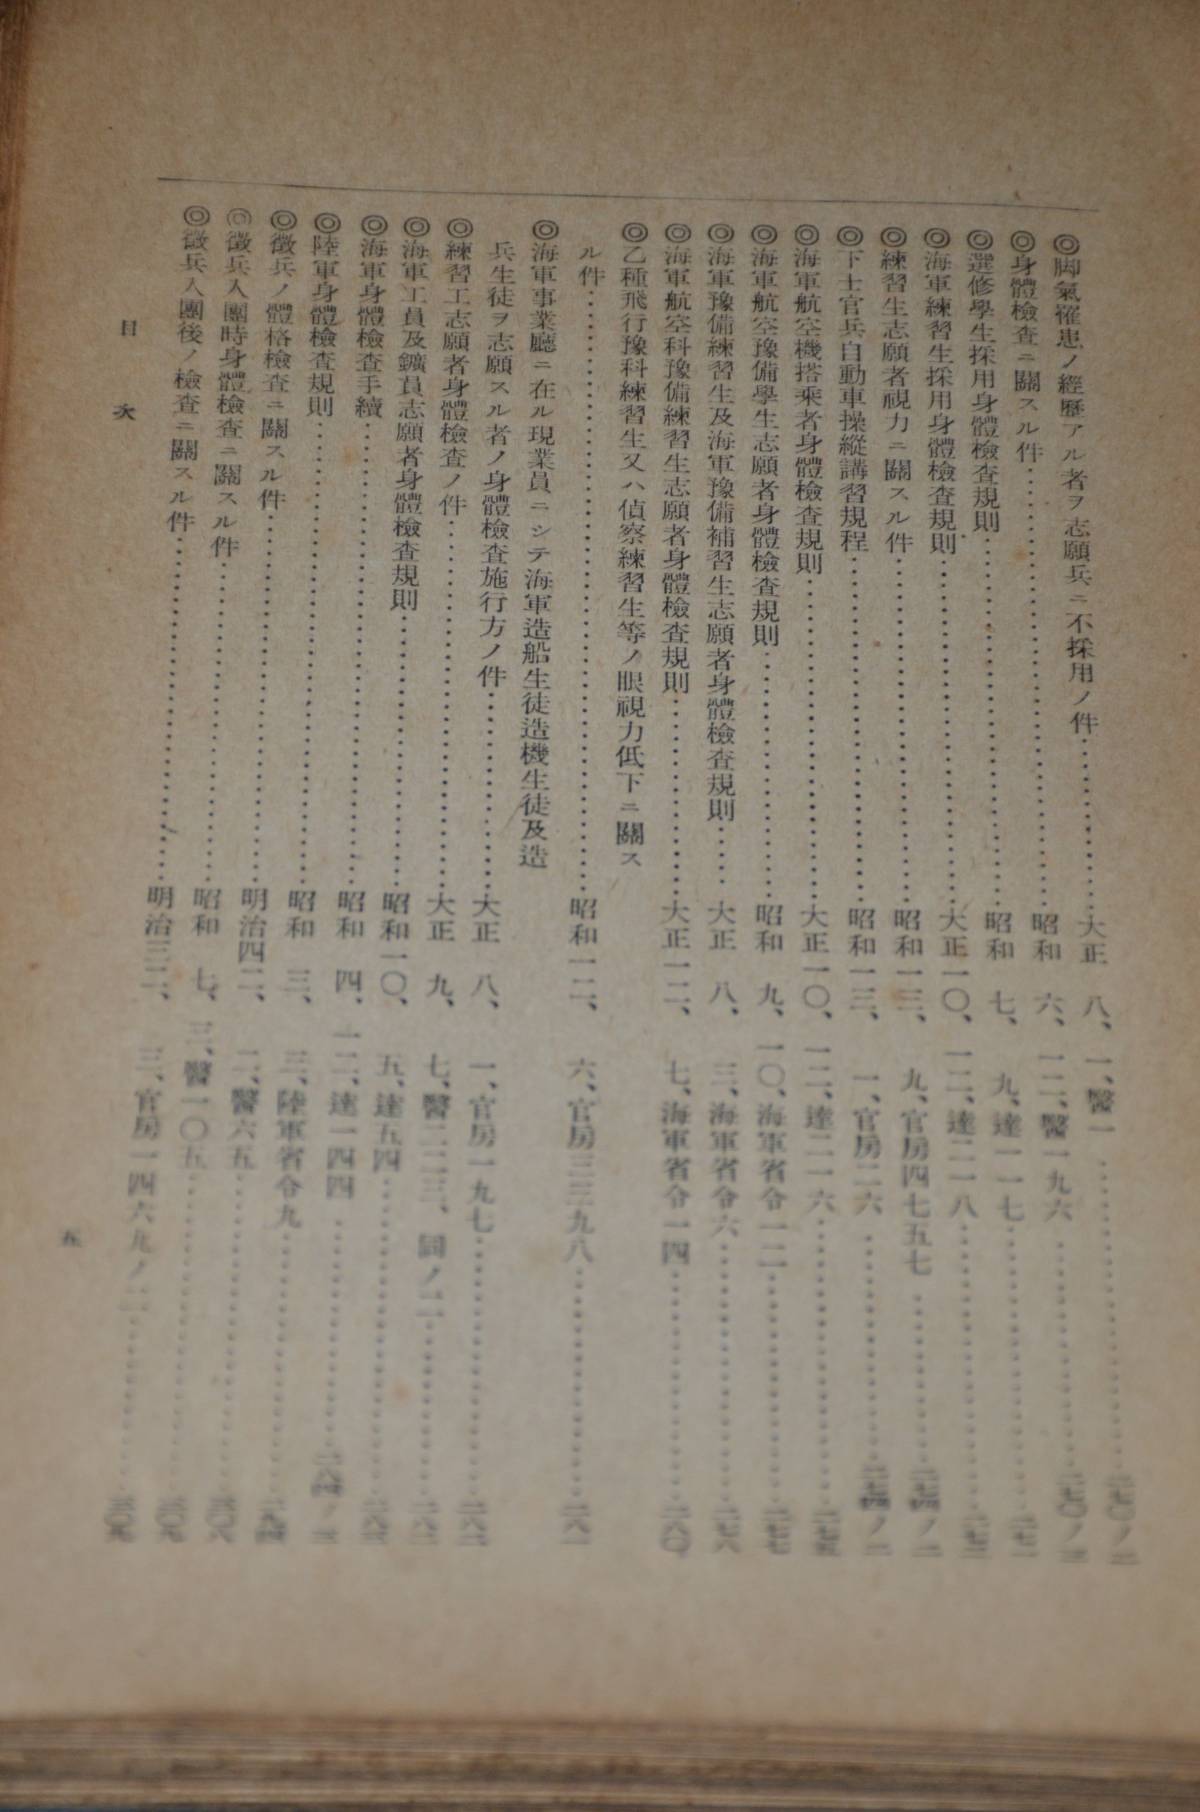 ◎脚氣罹患ノ經歷アル者ヲ志願兵ニ不採用ノ件……大正 八、一、醫一……二七〇ノ二
◎身體檢査ニ關スル件……昭和 六、一二、醫一九六……二七〇ノ三
◎選修學生採用身體檢査規則……昭和 七、九、達一一七……二七一
◎海軍練習生採用身體檢査規則……大正一〇、一二、達二一八……二七三
◎練習生志願者視力ニ關スル件……昭和一三、九、官房四七五七……二七四ノ二
◎下士官兵自動車操縱講習規程……昭和一三、一、官房二六……二七四ノ二
◎海軍航空機搭乘者身體檢査規則……大正一〇、一二、達二一六……二七五
◎海軍航空豫備學生志願者身體檢査規則……昭和 九、一〇、海軍省令一二……二七七
◎海軍豫備練習生及海軍豫備補習生志願者身體檢査規則……大正 八、三、海軍省令六……二七六
◎海軍航空科豫備練習生志願者身體檢査規則……大正一二、七、海軍省令一四……二八〇
◎乙種飛行豫科練習生又ハ偵察練習生等ノ眼視力低下ニ關ス
ル件……昭和一二、六、官房三三九八……二八一
◎海軍事業廳ニ在ル現業員ニシテ海軍造船生徒造機生徒及造
兵生徒ヲ志願スル者ノ身體檢査施行方ノ件……大正 八、一、官房一九七……二八二
◎練習工志願者身體檢査ノ件……大正 九、七、醫二二三、同ノ二……二八二
◎海軍工員及鑛員志願者身體檢査規則……昭和一〇、五、達五四……二八三
◎海軍身體檢査手續……昭和 四、一二、達一四四……二八四ノ二
◎陸軍身體檢査規則……昭和 三、三、陸軍省令九……二九四
◎徵兵ノ體格檢査ニ關スル件……明治四二、二、醫六五……三〇八
◎徵兵入團時身體檢査ニ關スル件……昭和 七、三、醫一〇五……三〇九
◎徵兵入團後ノ檢査ニ關スル件……明治三二、三、官房一四六九ノ二……三〇九
目 次
五